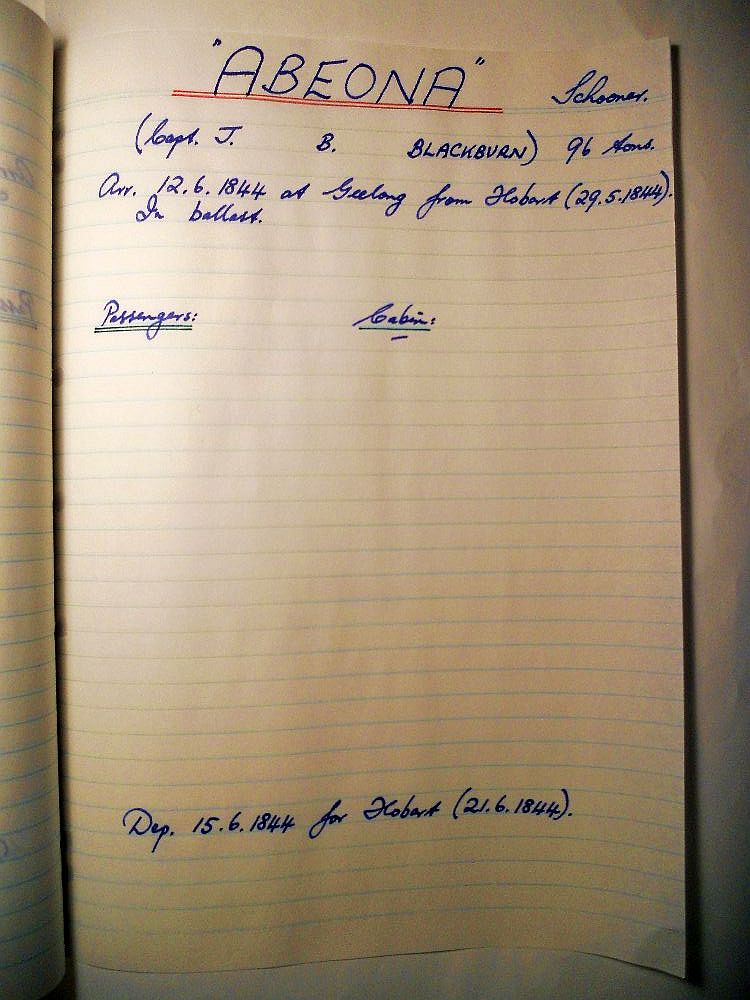 "ABEONA" Schooner.
(Capt. J. B. BLACKBURN) 96 tons.
Arr. 12.6.1844 at Geelong from Hobart (29.5.1844).
In ballast.
Passengers: Cabin:
–
Dep. 15.6.1844 for Hobart (21.6.1844).